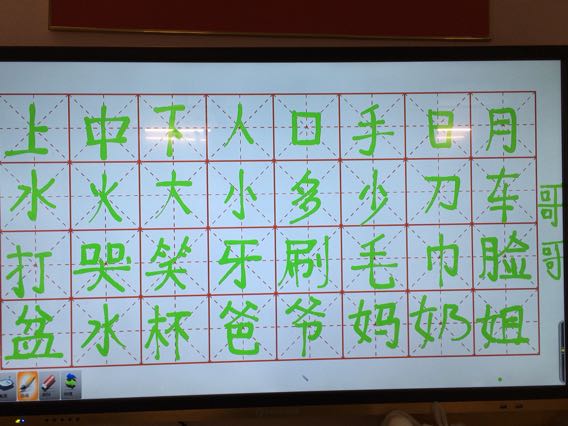 上中下人口手日月
水火大小多少刀车
打哭笑牙刷毛巾脸
盆水杯爸爷妈奶姐
哥哥